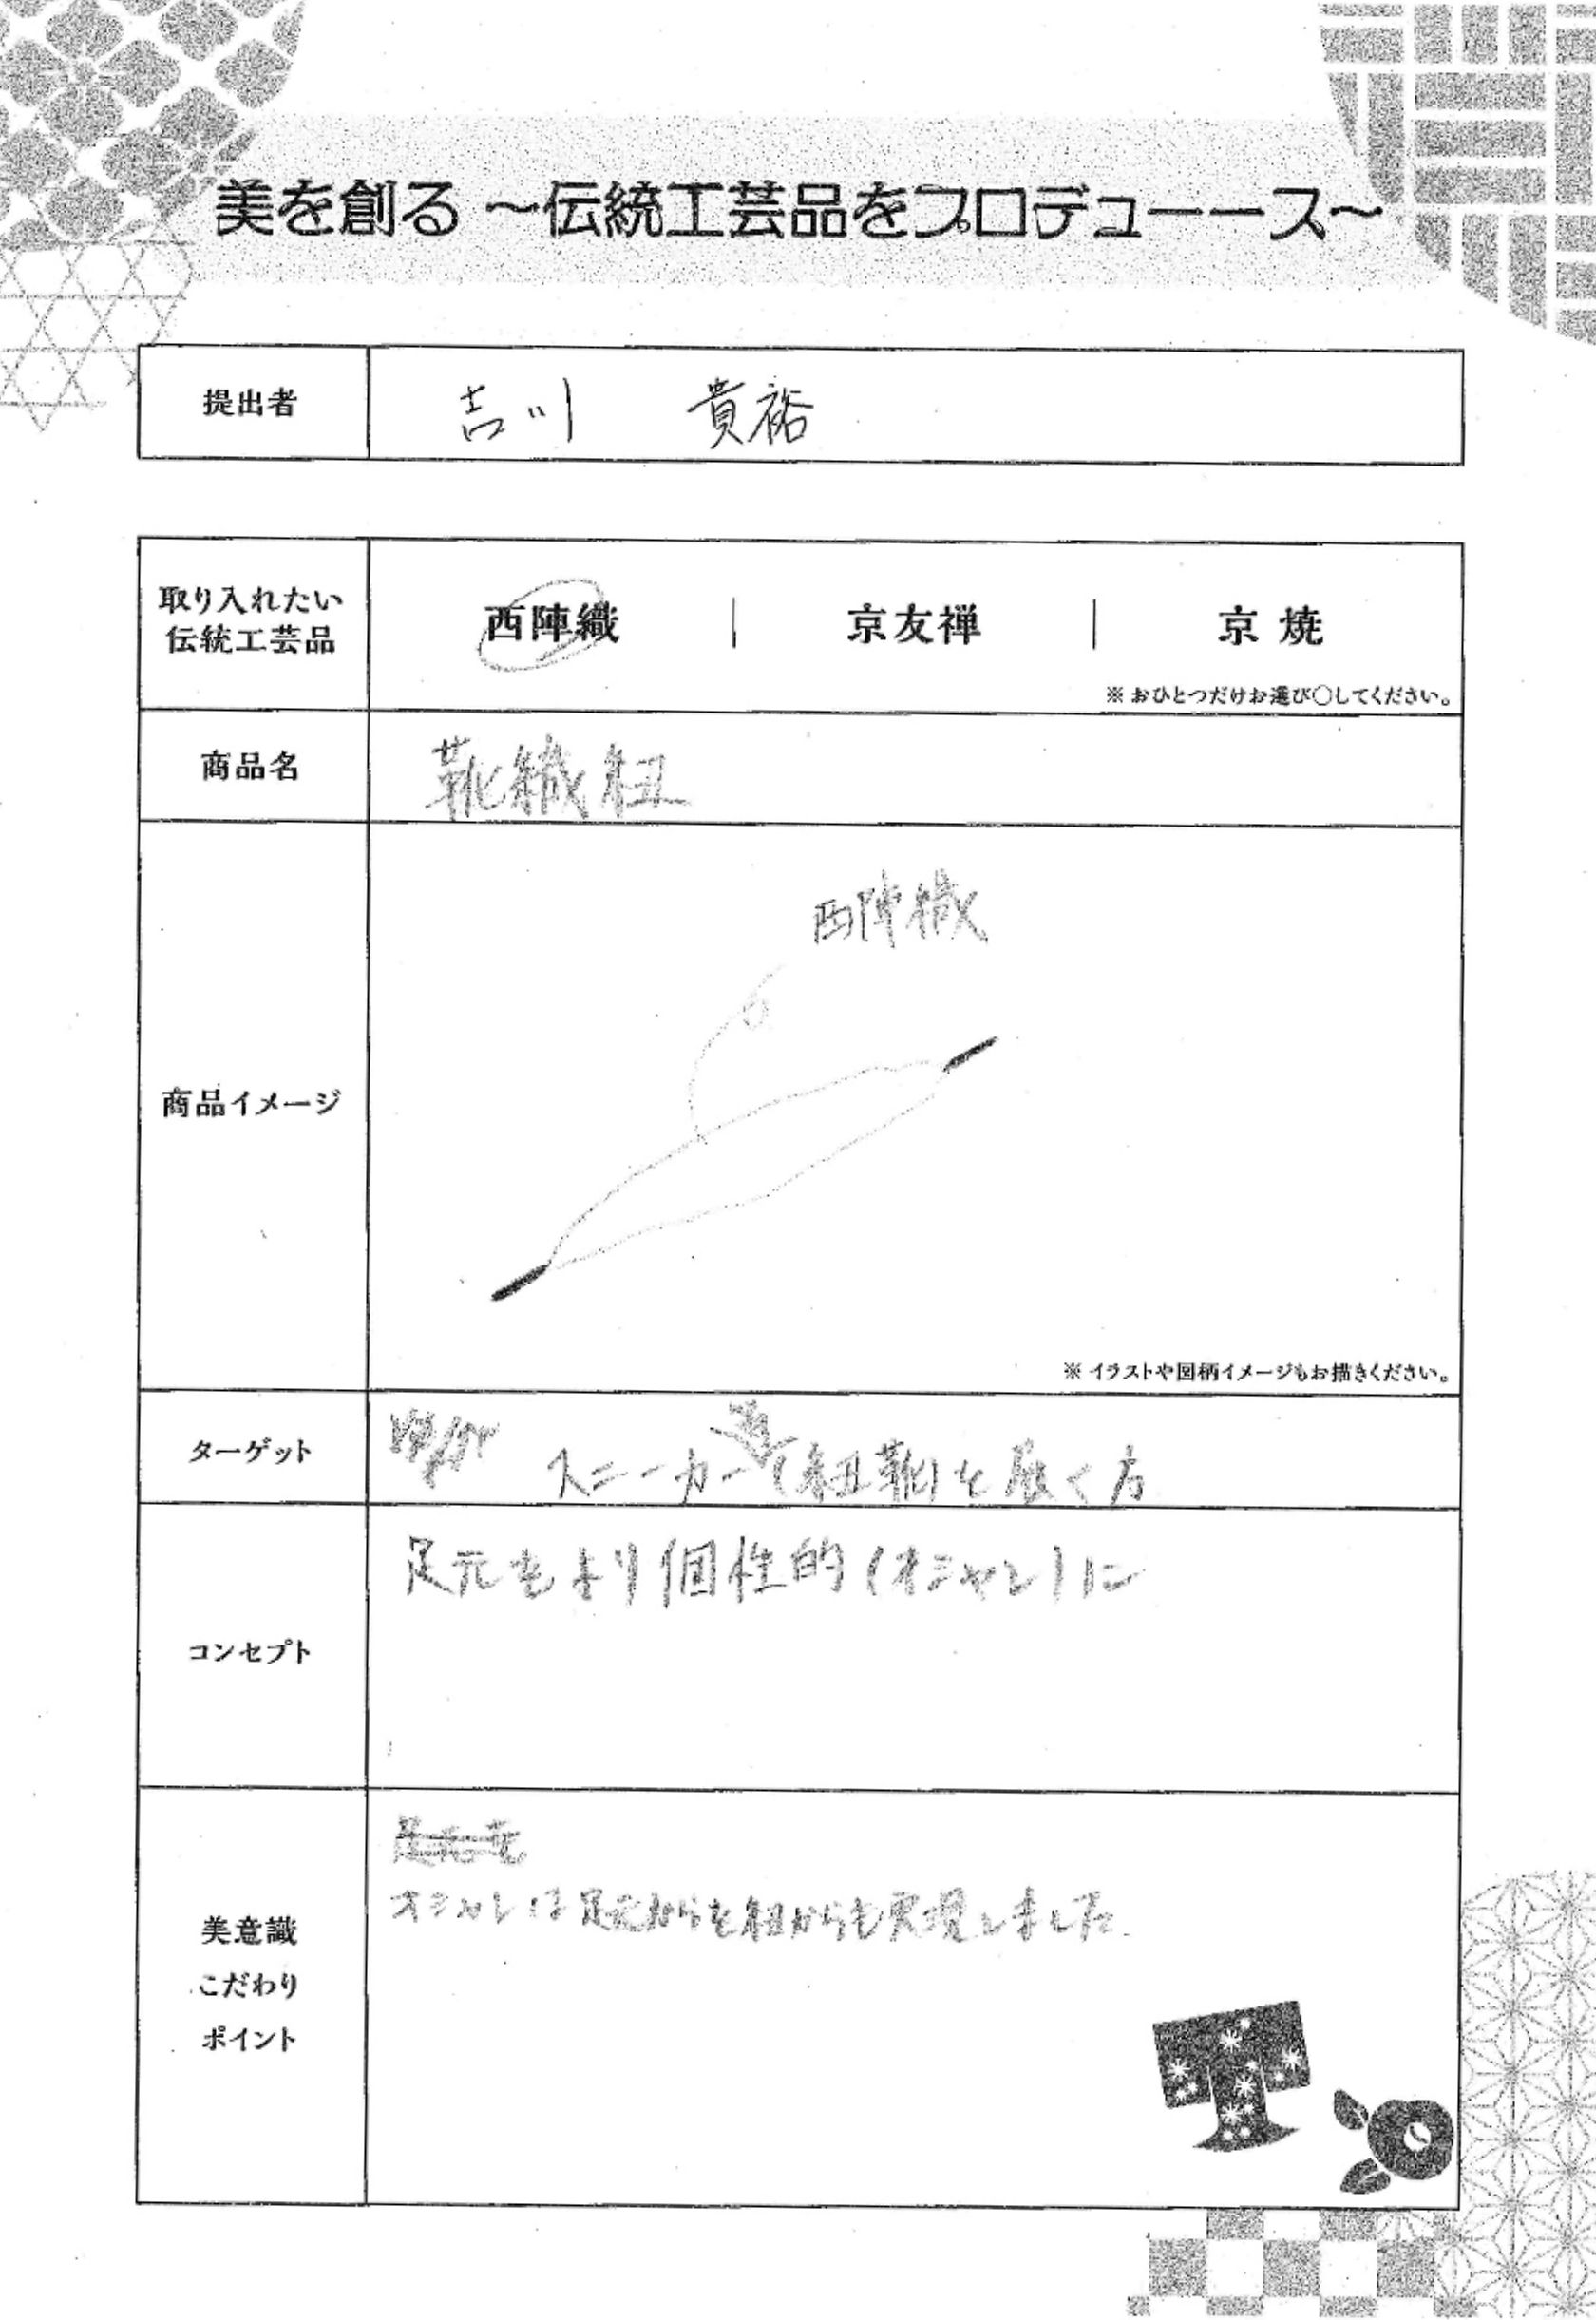 美を創る ～伝統工芸品をプロデューース～
提出者
吉川 貴裕
取り入れたい
伝統工芸品
西陣織 | 京友禅 | 京焼
※おひとつだけお選び〇してください。
商品名
靴織紐
商品イメージ
西陣織
※イラストや図柄イメージもお描きください。
ターゲット
スニーカー(紐靴)を履く方
コンセプト
足元をより個性的(オシャレ)に
美意識
こだわり
ポイント
足元を
オシャレは足元からを紐からも実現しました.